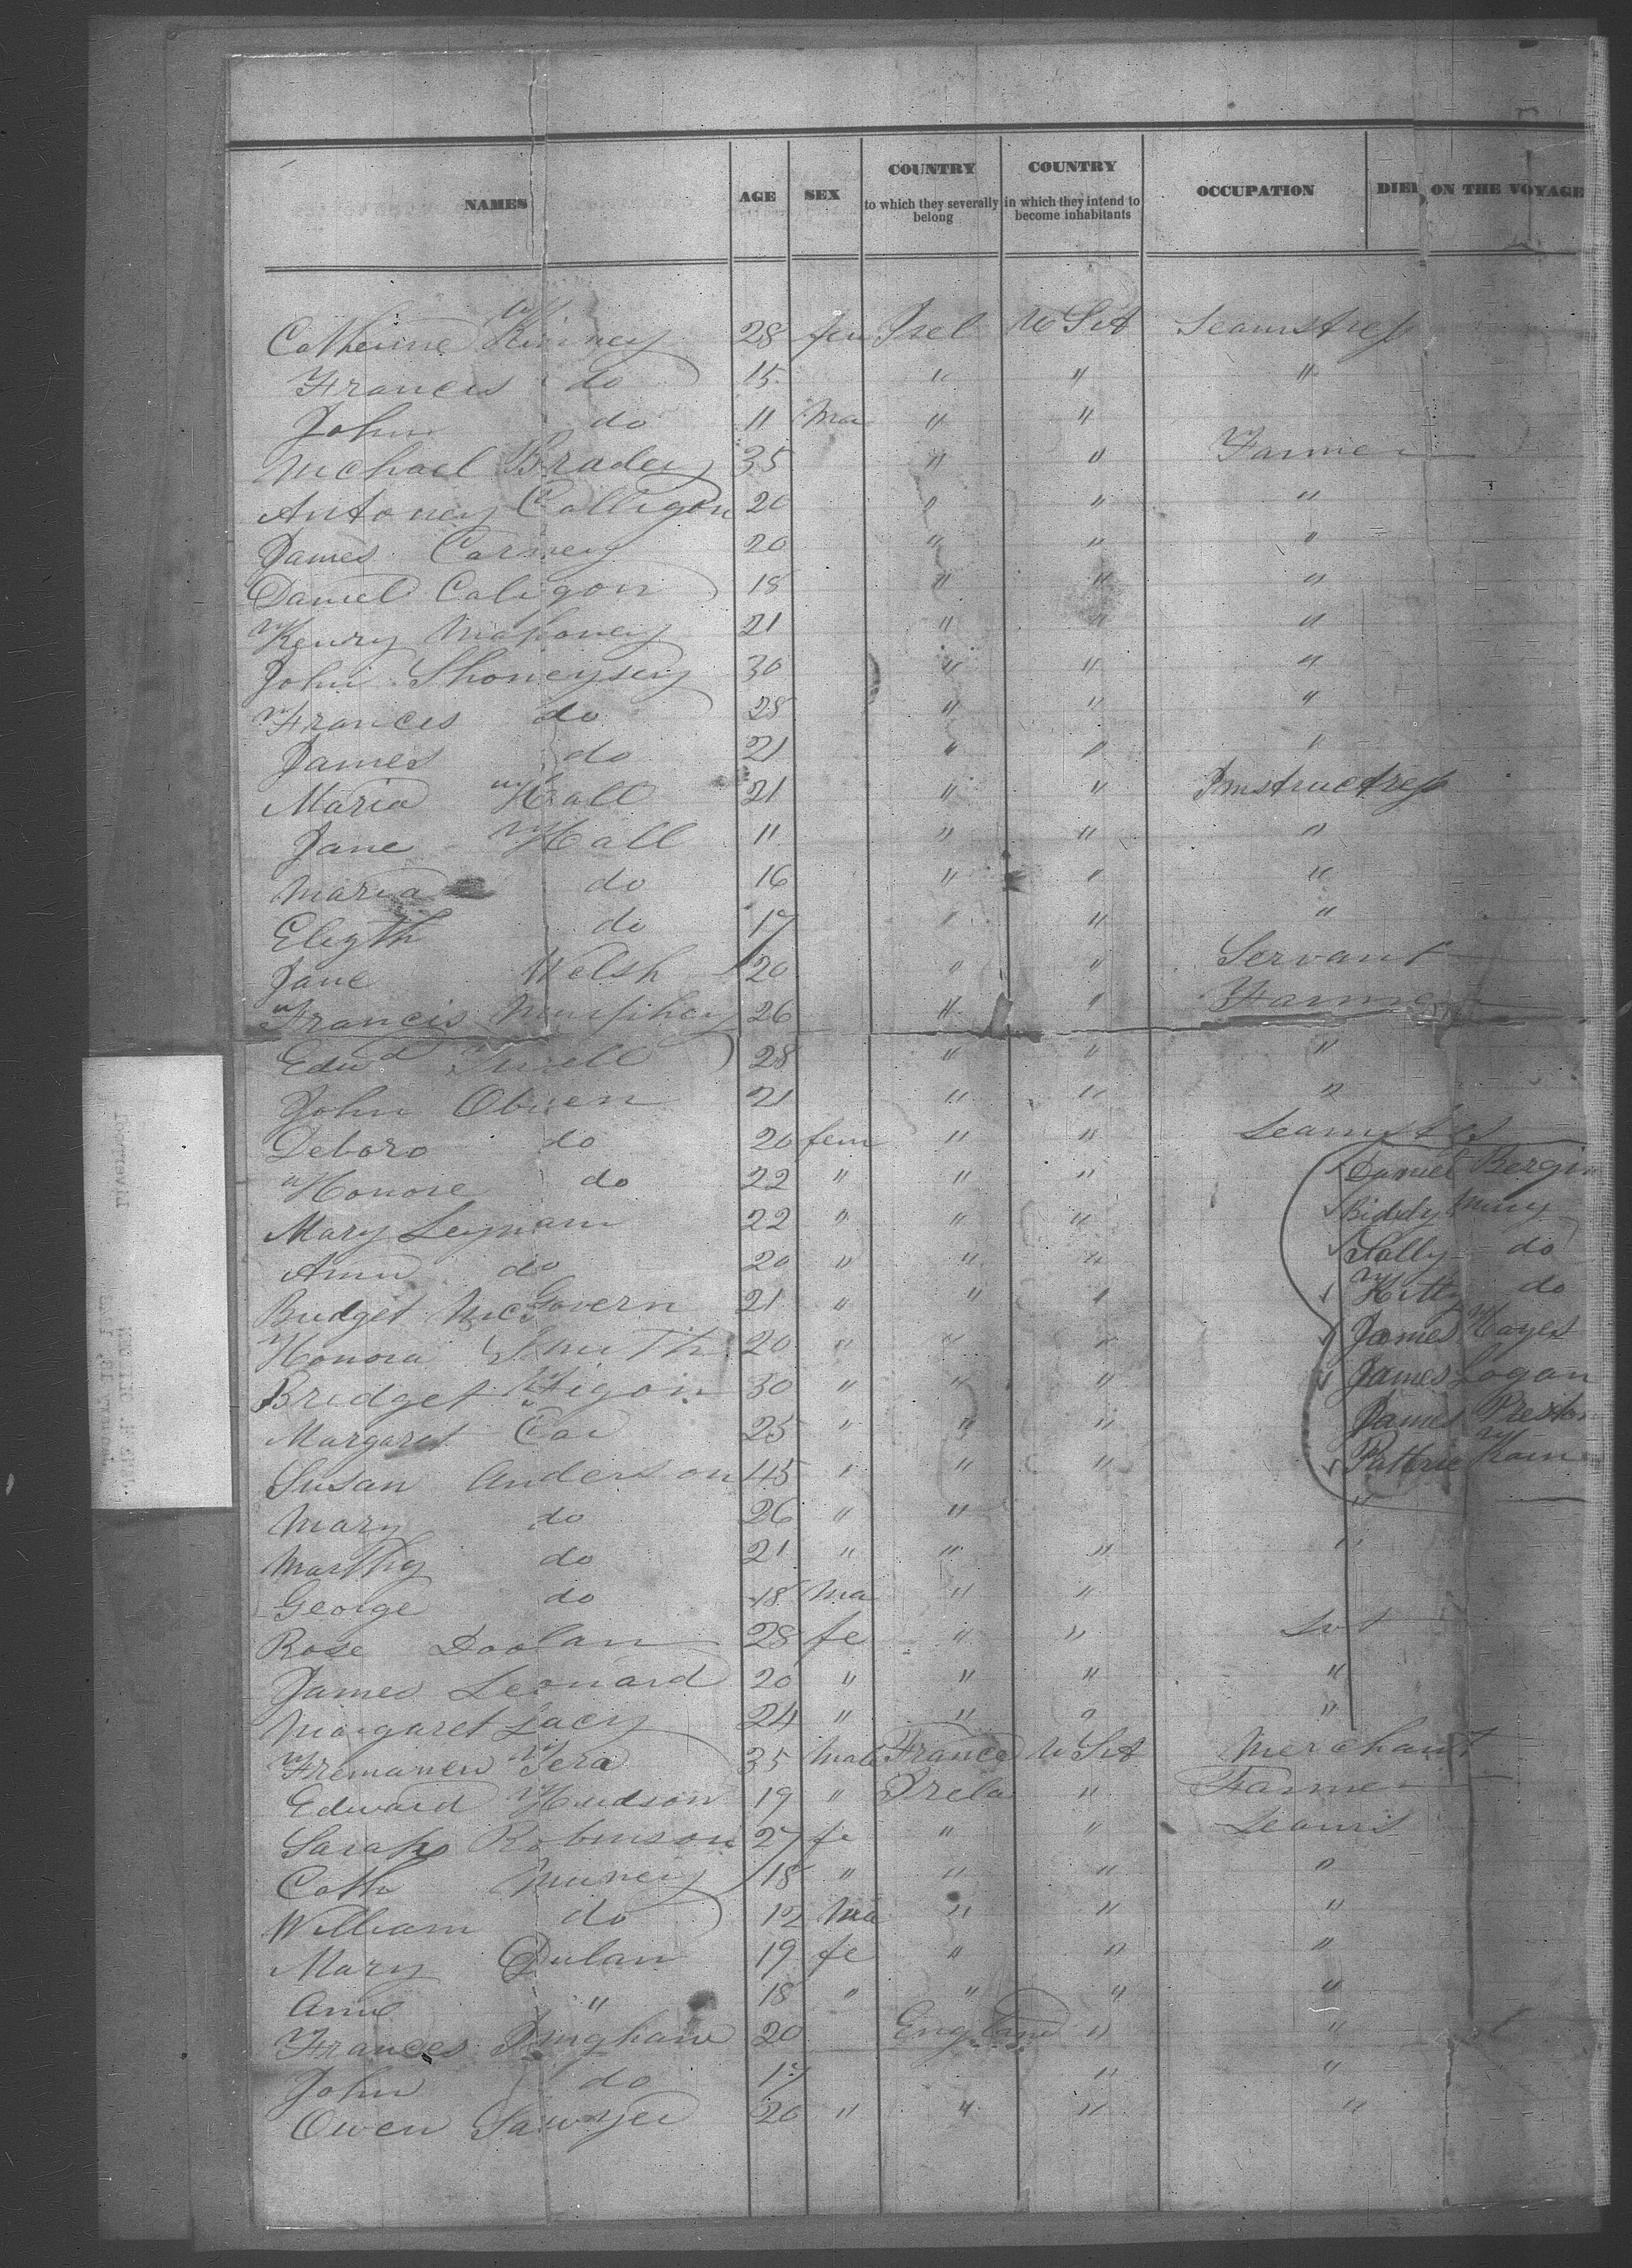 NAMES AGE SEX COUNTRY to which they severally belong COUNTRY in which they intend to become inhabitants OCCUPATION DIED ON THE VOYAGE
Catherine Kinney 28 fem Irel U St Seamstress
Francis do 15 " " "
John do 11 Ma " "
Michael Bradey 35 " " Farmer
Antoney Calligon 20 " " "
James Carney 20 " " "
Daniel Caligon 18 " " "
Henry Mahoney 21 " " "
John Shoneysey 30 " " "
Frances do 28 " " "
James do 21 " " "
Maria Hall 21 " " Instructress
Jane Hall 11 " " "
Maria do 16 " " "
Eligth do 17 " " "
Jane Welsh 20 " " Servant
Francis Murphey 26 " " Farmer
Edwd 28 " " "
John Obrien 21 " " "
Deboro do 20 fem " " Seamstes
Honore do 22 " " " Daniel Bergin
Mary Leynam 22 " " " Biddy Murry
Ann do 20 " " " Sally do
Bridget McGovern 21 " " " Kitty do
Honora Smith 20 " " " James Hayes
Bridget Higon 30 " " " James Logan
Margaret Car 25 " " " James Preston
Susan Anderson 45 " " " Patric Kain
Mary do 26 " " "
Marthy do 21 " " " "
George do 18 Ma " "
Rose Doolan 28 fe " " Svt
James Leonard 20 " " " "
Margaret Lacey 24 " " " "
35 Male France U St Merchant
Edward Hudson 19 " Irela " Farmer
Sarah Robinson 27 fe " " Seams
Cath Murrey 18 " " " "
William do 12 Ma " " "
Mary Dulan 19 fe " " "
Anne " 18 " " " "
Frances Bingham 20 England " "
John do 17 " "
Owen Sawyer 20 " " " "